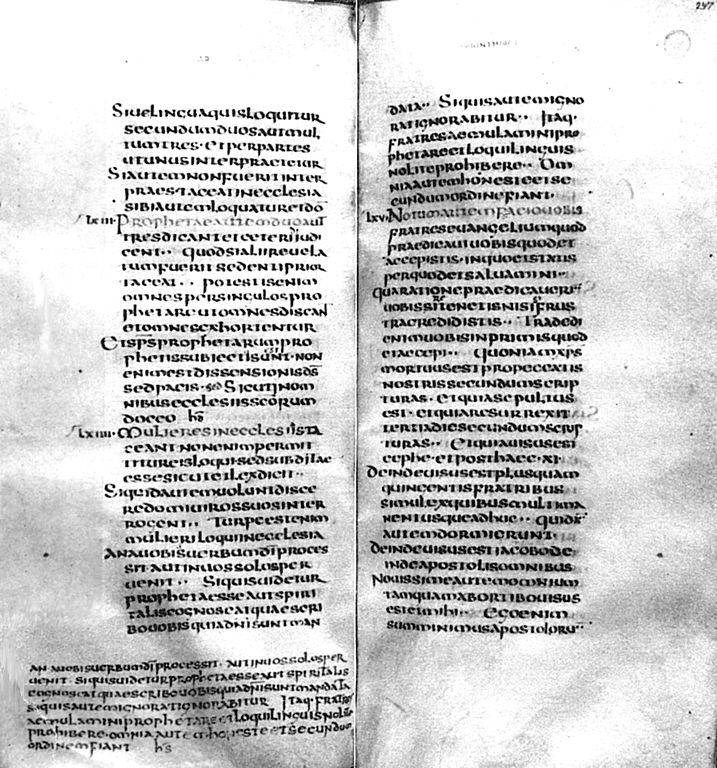 247
Siue lingua quis loquitur
secundum duos aut mul
tum tres · et per partes
ut unus interpraetetur
Si autem non fuerit inter
praes taceat in ecclesia
sibi autem loquatur et dō
lxiii · Prophetae autem duo aut
tres dicant et ceteri diiudi
cent ·· quod si alii reuela
tum fuerit sedenti prior
taceat ·· potestis enim
omnes per singulos pro
phetare ut omnes discan
et omnes exhortentur
Et sps̄ prophetarum pro
phetis subiecti sunt · non
enim est dissensionis ds̄
sed pacis · sed Sicut in om
nibus ecclesiis scōrum
doceo hs
lxiiii · Mulieres in ecclesiis ta
ceant non enim permit
titur eis loqui · sed subditae
esse sicut et lex dicit ··
Si quid autem uolunt disce
re domi uiros suos inter
rogent ·· Turpe est enim
mulieri loqui in ecclesia
An a uobis uerbum dī proces
sit · aut in uos solos per
uenit ·· Si quis uidetur
propheta esse aut spiri
talis cognoscat quae scri
bo uobis quia dni sunt man
an a uobis uerbum dī processit · aut in uos solos per
uenit · Si quis uidetur propheta esse aut spiritalis
cognoscat quae scribo uobis quia dni sunt mandata
si quis autem ignorat ignorabitur Itaq · fratres
aemulamini prophetare et loqui linguis nolite
prohibere · omnia autem honeste et secundū
ordinem fiant hs
data ·· Si quis autem igno
rat ignorabitur ·· Itaq ·
fratres aemulamini pro
phetare et loqui linguis
nolite prohibere ·· Om
nia autem honeste et se
cundum ordinem fiant ·
lxv · Notum autem facio uobis
fratres euangelium quod
praedicaui uobis quod et
accepistis · in quo et statis
per quod et saluamini ··
qua ratione praedicauerim
uobis si tenetis nisi si frus
tra credidistis ·· Tradidi
enim uobis in primis quod
et accepi ·· Quoniam xps̄
mortuus est pro peccatis
nostris secundum scrip
turas · et quia sepultus
est · et quia resurrexit
tertia die secundum scrip
turas ·· Et quia uisus est
cephe · et post haec · xi ·
Deinde uisus est plus quam
quingentis fratribus
simul ex quibus multi ma
nent usque adhuc ·· quidā
autem dormierunt ·
deinde uisus est iacobo de
inde apostolis omnibus
Nouissime autem omnium
tamquam abortibo uisus
est et mihi ·· Ego enim
sum minimus apostoloru ··